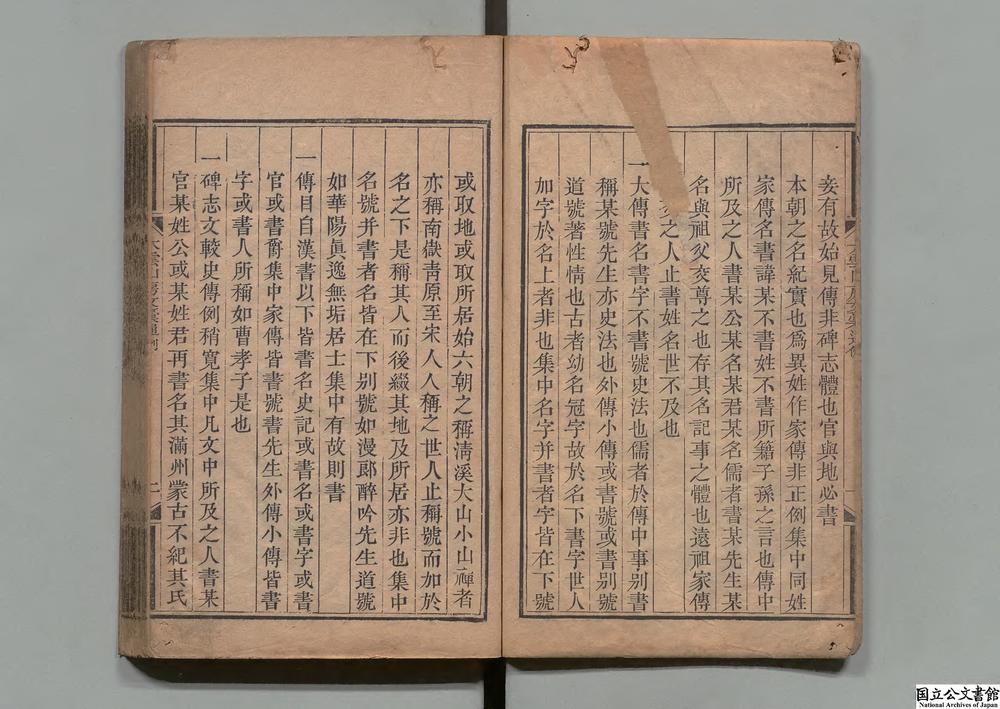 妾有故始見傳非碑志體也官與地必書
本朝之名紀實也爲異姓作家傳非正例集中同姓
家傳名書諱某不書姓不書所籍子孫之言也傳中
所及之人書某公某名某君某名儒者書某先生某
名與祖父友尊之也存其名記事之體也遠祖家傳
之人止書姓名世不及也
一大傳書名書字不書號史法也儒者於傳中事别書
稱某號先生亦史法也外傳小傳或書號或書别號
道號著性情也古者幼名冠字故於名下書字世人
加字於名上者非也集中名字并書者字皆在下號
或取地或取所居始六朝之稱淸溪大山小山禪者
亦稱南嶽靑原至宋人人稱之世人止稱號而如於
名之下是稱其人而後綴其地及所居亦非也集中
名號并書者名皆在下别號如漫郎醉吟先生道號
如華陽眞逸無垢居士集中有故則書
一傳目自漢書以下皆書名史記或書名或書字或書
官或書爵集中家傳皆書號書先生外傳小傳皆書
字或書人所稱如曹孝子是也
一碑志文較史傳例稍寬集中凡文中所及之人書某
官某姓公或某姓君再書名其滿州蒙古不紀其氏
二
国立公文書館
National Archives of Japan